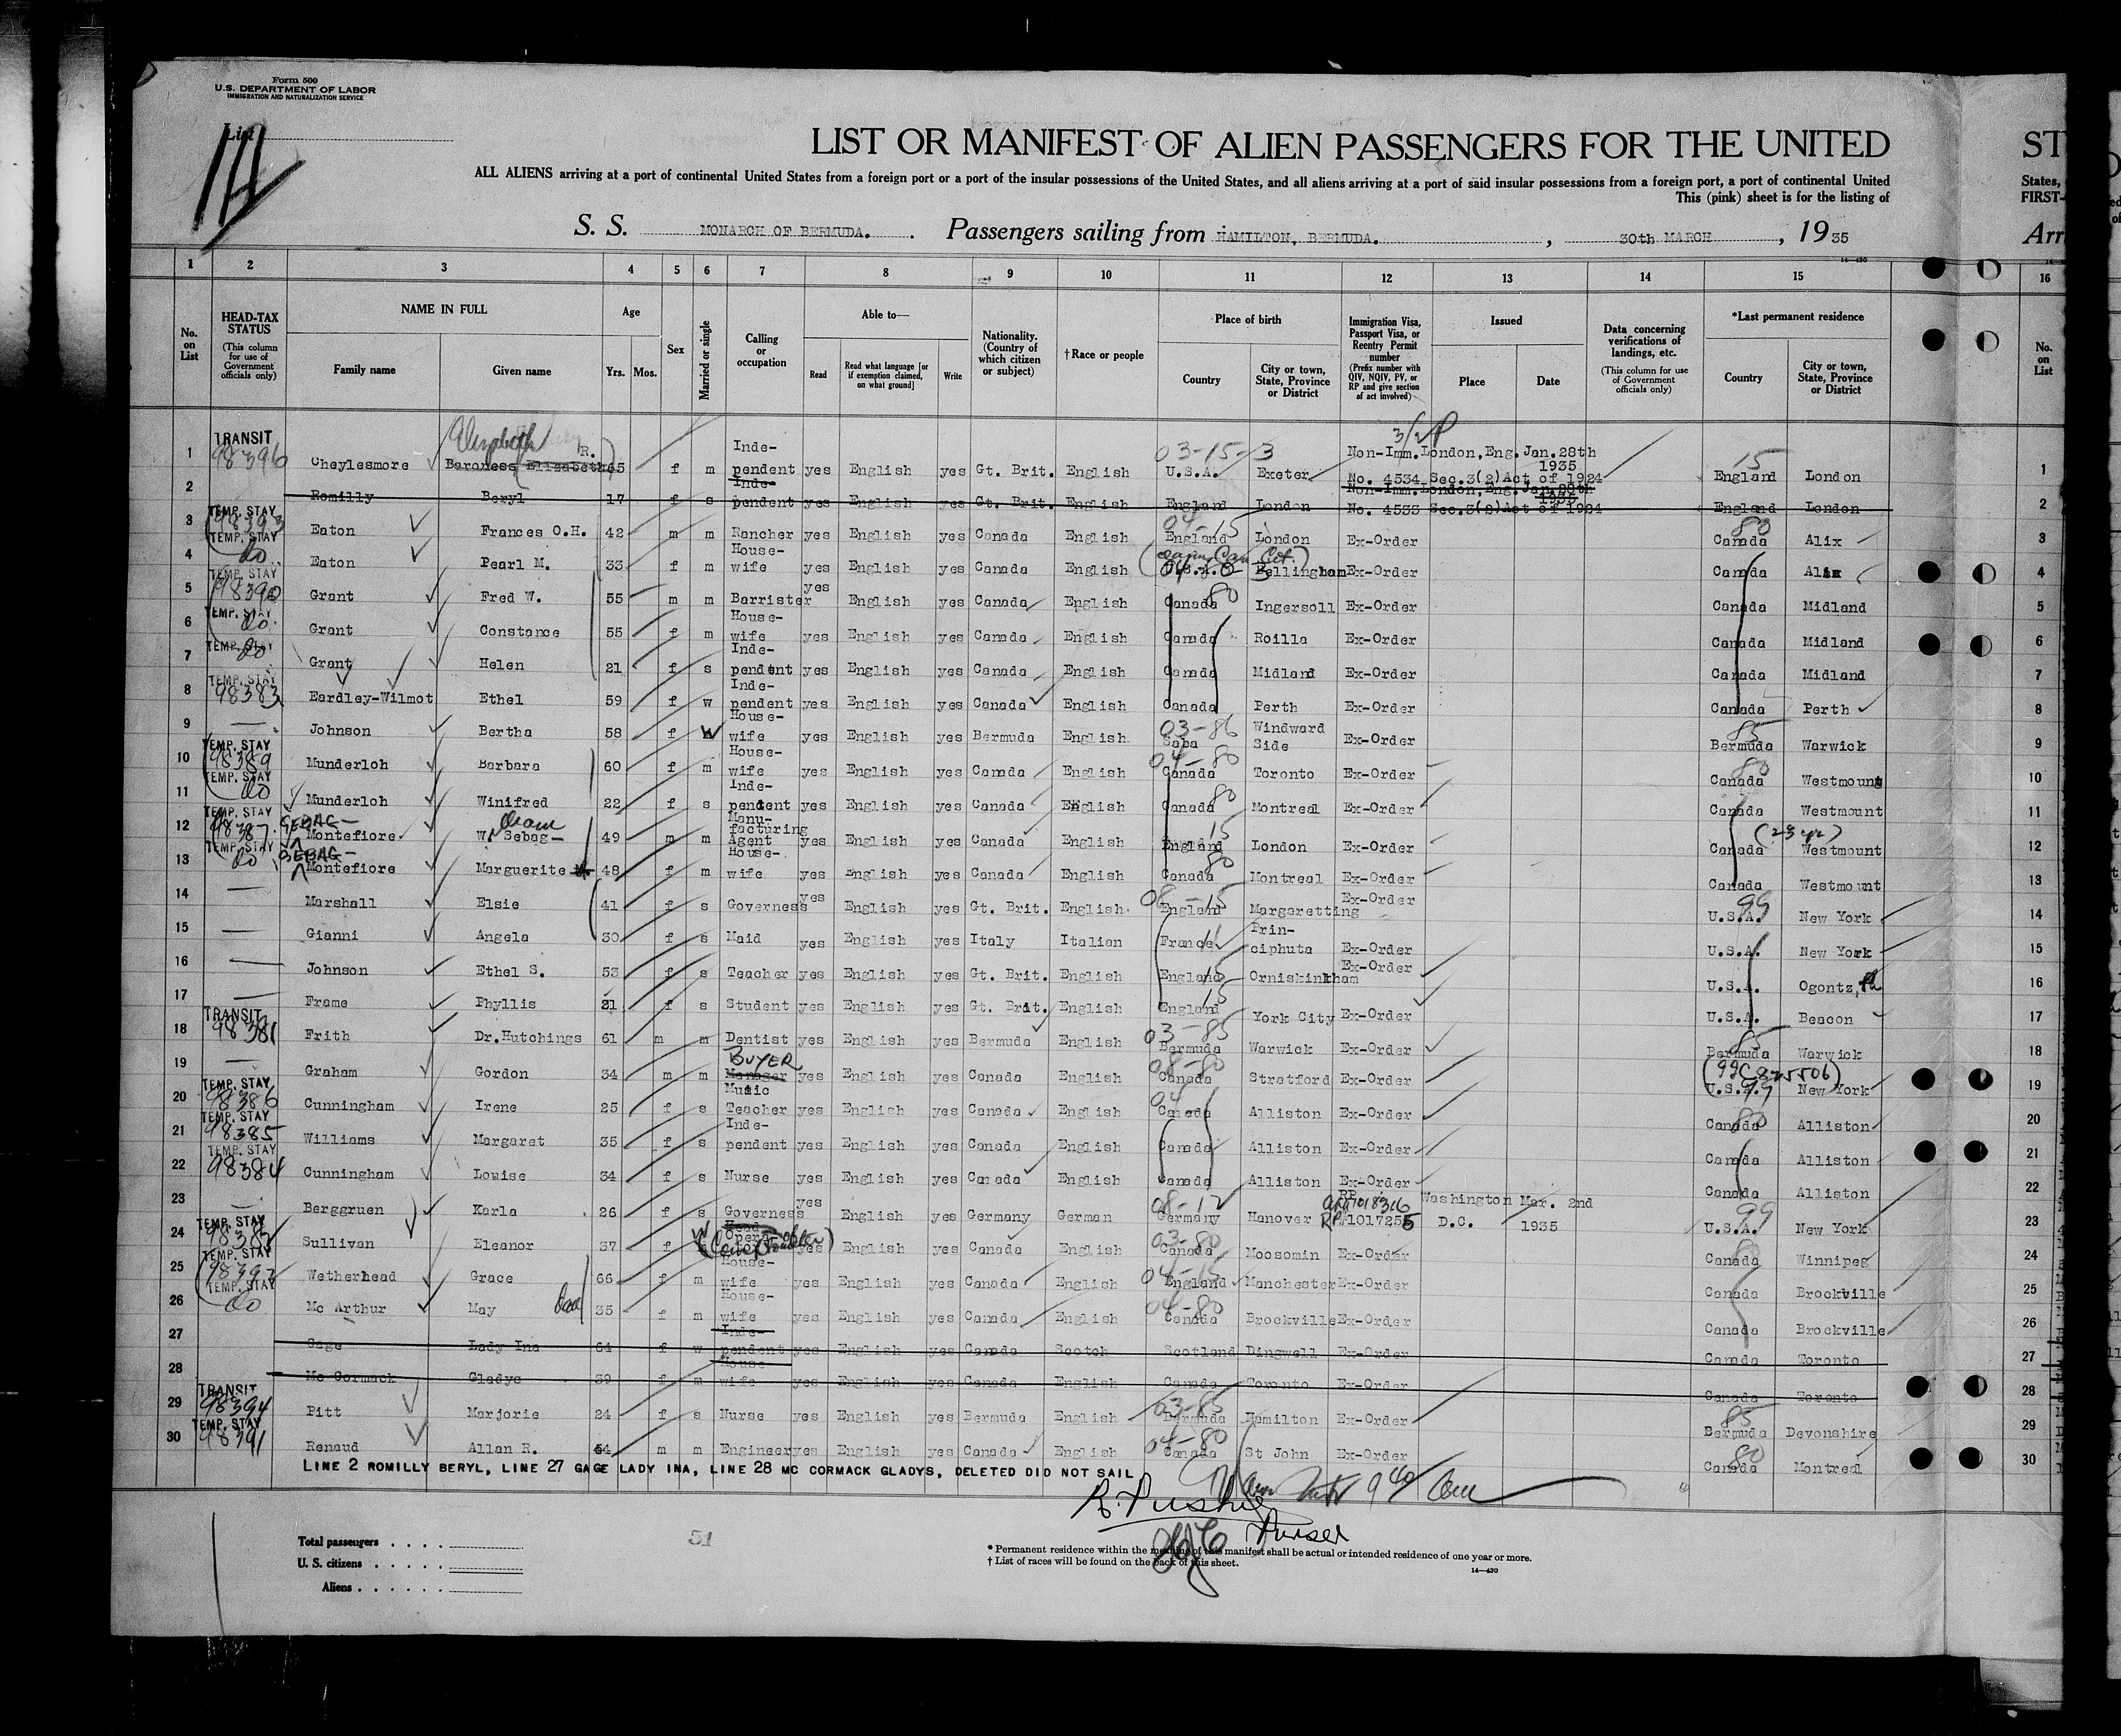 Form 500
U.S. DEPARTMENT OF LABOR
IMMIGRATION AND NATURALIZATION SERVICE
List
LIST OR MANIFEST OF ALIEN PASSENGERS FOR THE UNITED ST
ALL ALIENS arriving at a port of continental United States from a foreign port or a port of the insular possessions of the United States, and all aliens arriving at a port of said insular possessions from a foreign port, a port of continental United States,
This (pink) sheet is for the listing of FIRST-
S. S. MONARCH OF BERMUDA. Passengers sailing from HAMILTON, BERMUDA. , 30th MARCH , 1935 Arr
14-430
1 2 3 4 5 6 7 8 9 10 11 12 13 14 15 16
No. on List
HEAD-TAX STATUS (This column for use of Government officials only)
NAME IN FULL Family name Given name
Age Yrs. Mos.
Sex
Married or single
Calling or occupation
Able to— Read Read what language [or if exemption claimed, on what ground] Write
Nationality. (Country of which citizen or subject)
†Race or people
Place of birth Country City or town, State, Province or District
Immigration Visa, Passport Visa, or Reentry Permit number (Prefix number with QIV, NQIV, PV, or RP and give section of act involved)
Issued Place Date
Data concerning verifications of landings, etc. (This column for use of Government officials only)
*Last permanent residence Country City or town, State, Province or District
No. on List
1 TRANSIT 98396 Cheylesmore Elizabeth Baroness Elizabeth R. 65 f m Inde-pendent yes English yes Gt. Brit. English 03-15-3 U.S.A. Exeter Non-Imm.London,Eng.Jan.28th 1935 No. 4534 Sec.3(2)Act of 1924 15 England London 1
2 Romilly Beryl 17 f s Inde-pendent yes English yes Gt. Brit. English England London Non-Imm.London,Eng.Jan.28th 1935 No. 4533 Sec.3(2)Act of 1924 England London 2
3 TEMP. STAY 98393 Eaton Frances O.H. 42 m m Rancher yes English yes Canada English 04-15 England London Ex-Order 80 Canada Alix 3
4 TEMP. STAY do Eaton Pearl M. 33 f m House-wife yes English yes Canada English Bellingham Ex-Order Canada Alix 4
5 TEMP. STAY 98390 Grant Fred W. 55 m m Barrister yes English yes Canada English Canada 80 Ingersoll Ex-Order Canada Midland 5
6 TEMP. STAY do. Grant Constance 55 f m House-wife yes English yes Canada English Canada Roilla Ex-Order Canada Midland 6
7 TEMP. STAY do Grant Helen 21 f s Inde-pendent yes English yes Canada English Canada Midland Ex-Order Canada Midland 7
8 TEMP. STAY 98383 Eardley-Wilmot Ethel 59 f w Inde-pendent yes English yes Canada English Canada Perth Ex-Order Canada Perth 8
9 — Johnson Bertha 58 f W House-wife yes English yes Bermuda English 03-86 Saba Windward Side Ex-Order 85 Bermuda Warwick 9
10 TEMP. STAY 98389 Munderloh Barbara 60 f m House-wife yes English yes Canada English 04-80 Canada Toronto Ex-Order 80 Canada Westmount 10
11 TEMP. STAY do Munderloh Winifred 22 f s Inde-pendent yes English yes Canada English Canada 80 Montreal Ex-Order Canada Westmount 11
12 TEMP. STAY 98387 SEBAG- Montefiore W. Sebag- 49 m m Manu-facturing Agent yes English yes Canada English 15 England London Ex-Order (23 yr) Canada Westmount 12
13 TEMP. STAY do SEBAG- Montefiore Marguerite 48 f m House-wife yes English yes Canada English 80 Canada Montreal Ex-Order Canada Westmount 13
14 — Marshall Elsie 41 f s Governess yes English yes Gt. Brit. English 08-15 England Margaretting Ex-Order 99 U.S.A. New York 14
15 — Gianni Angela 30 f s Maid yes English yes Italy Italian France Prin-ciphuta Ex-Order U.S.A. New York 15
16 — Johnson Ethel S. 53 f s Teacher yes English yes Gt. Brit. English 15 England Orniskinkham Ex-Order U.S.A. Ogontz, Pa 16
17 — Frame Phyllis 21 f s Student yes English yes Gt. Brit. English 15 England York City Ex-Order U.S.A. Beacon 17
18 TRANSIT 98381 Frith Dr.Hutchings 61 m m Dentist yes English yes Bermuda English 03-85 Bermuda Warwick Ex-Order 85 Bermuda Warwick 18
19 — Graham Gordon 34 m m BUYER Manager yes English yes Canada English 08-80 Canada Stratford Ex-Order U.S.A. New York 19
20 TEMP. STAY 98386 Cunningham Irene 25 f s Music Teacher yes English yes Canada English 04 Canada Alliston Ex-Order 80 Canada Alliston 20
21 TEMP. STAY 98385 Williams Margaret 35 f s Inde-pendent yes English yes Canada English Canada Alliston Ex-Order Canada Alliston 21
22 TEMP. STAY 98384 Cunningham Louise 34 f s Nurse yes English yes Canada English Canada Alliston Ex-Order Canada Alliston 22
23 — Berggruen Karla 26 f s Governess yes English yes Germany German 08-12 Germany Hanover RP 1017255 Washington D.C. Mar. 2nd 1935 99 U.S.A. New York 23
24 TEMP. STAY 98382 Sullivan Eleanor 37 f W Head Opera- yes English yes Canada English 03-80 Canada Moosomin Ex-Order 80 Canada Winnipeg 24
25 TEMP. STAY 98392 Wetherhead Grace 66 f m House-wife yes English yes Canada English 04-15 England Manchester Ex-Order Canada Brockville 25
26 TEMP. STAY do Mc Arthur May 35 f m House-wife yes English yes Canada English 04-80 Canada Brockville Ex-Order Canada Brockville 26
27 Gage Lady Ina 64 f w Inde-pendent yes English yes Canada Scotch Scotland Dingwell Ex-Order Canada Toronto 27
28 Mc Cormack Gladys 39 f m House-wife yes English yes Canada English Canada Toronto Ex-Order Canada Toronto 28
29 TRANSIT 98394 Pitt Marjorie 24 f s Nurse yes English yes Bermuda English 03-85 Bermuda Hamilton Ex-Order 85 Bermuda Devonshire 29
30 TEMP. STAY 98391 Renaud Allan R. 54 m m Engineer yes English yes Canada English 04-80 Canada St John Ex-Order 80 Canada Montreal 30
LINE 2 ROMILLY BERYL, LINE 27 GAGE LADY INA, LINE 28 MC CORMACK GLADYS, DELETED DID NOT SAIL
Purser
Total passengers
U. S. citizens
Aliens
51
* Permanent residence within the meaning of this manifest shall be actual or intended residence of one year or more.
† List of races will be found on the back of this sheet.
14-430